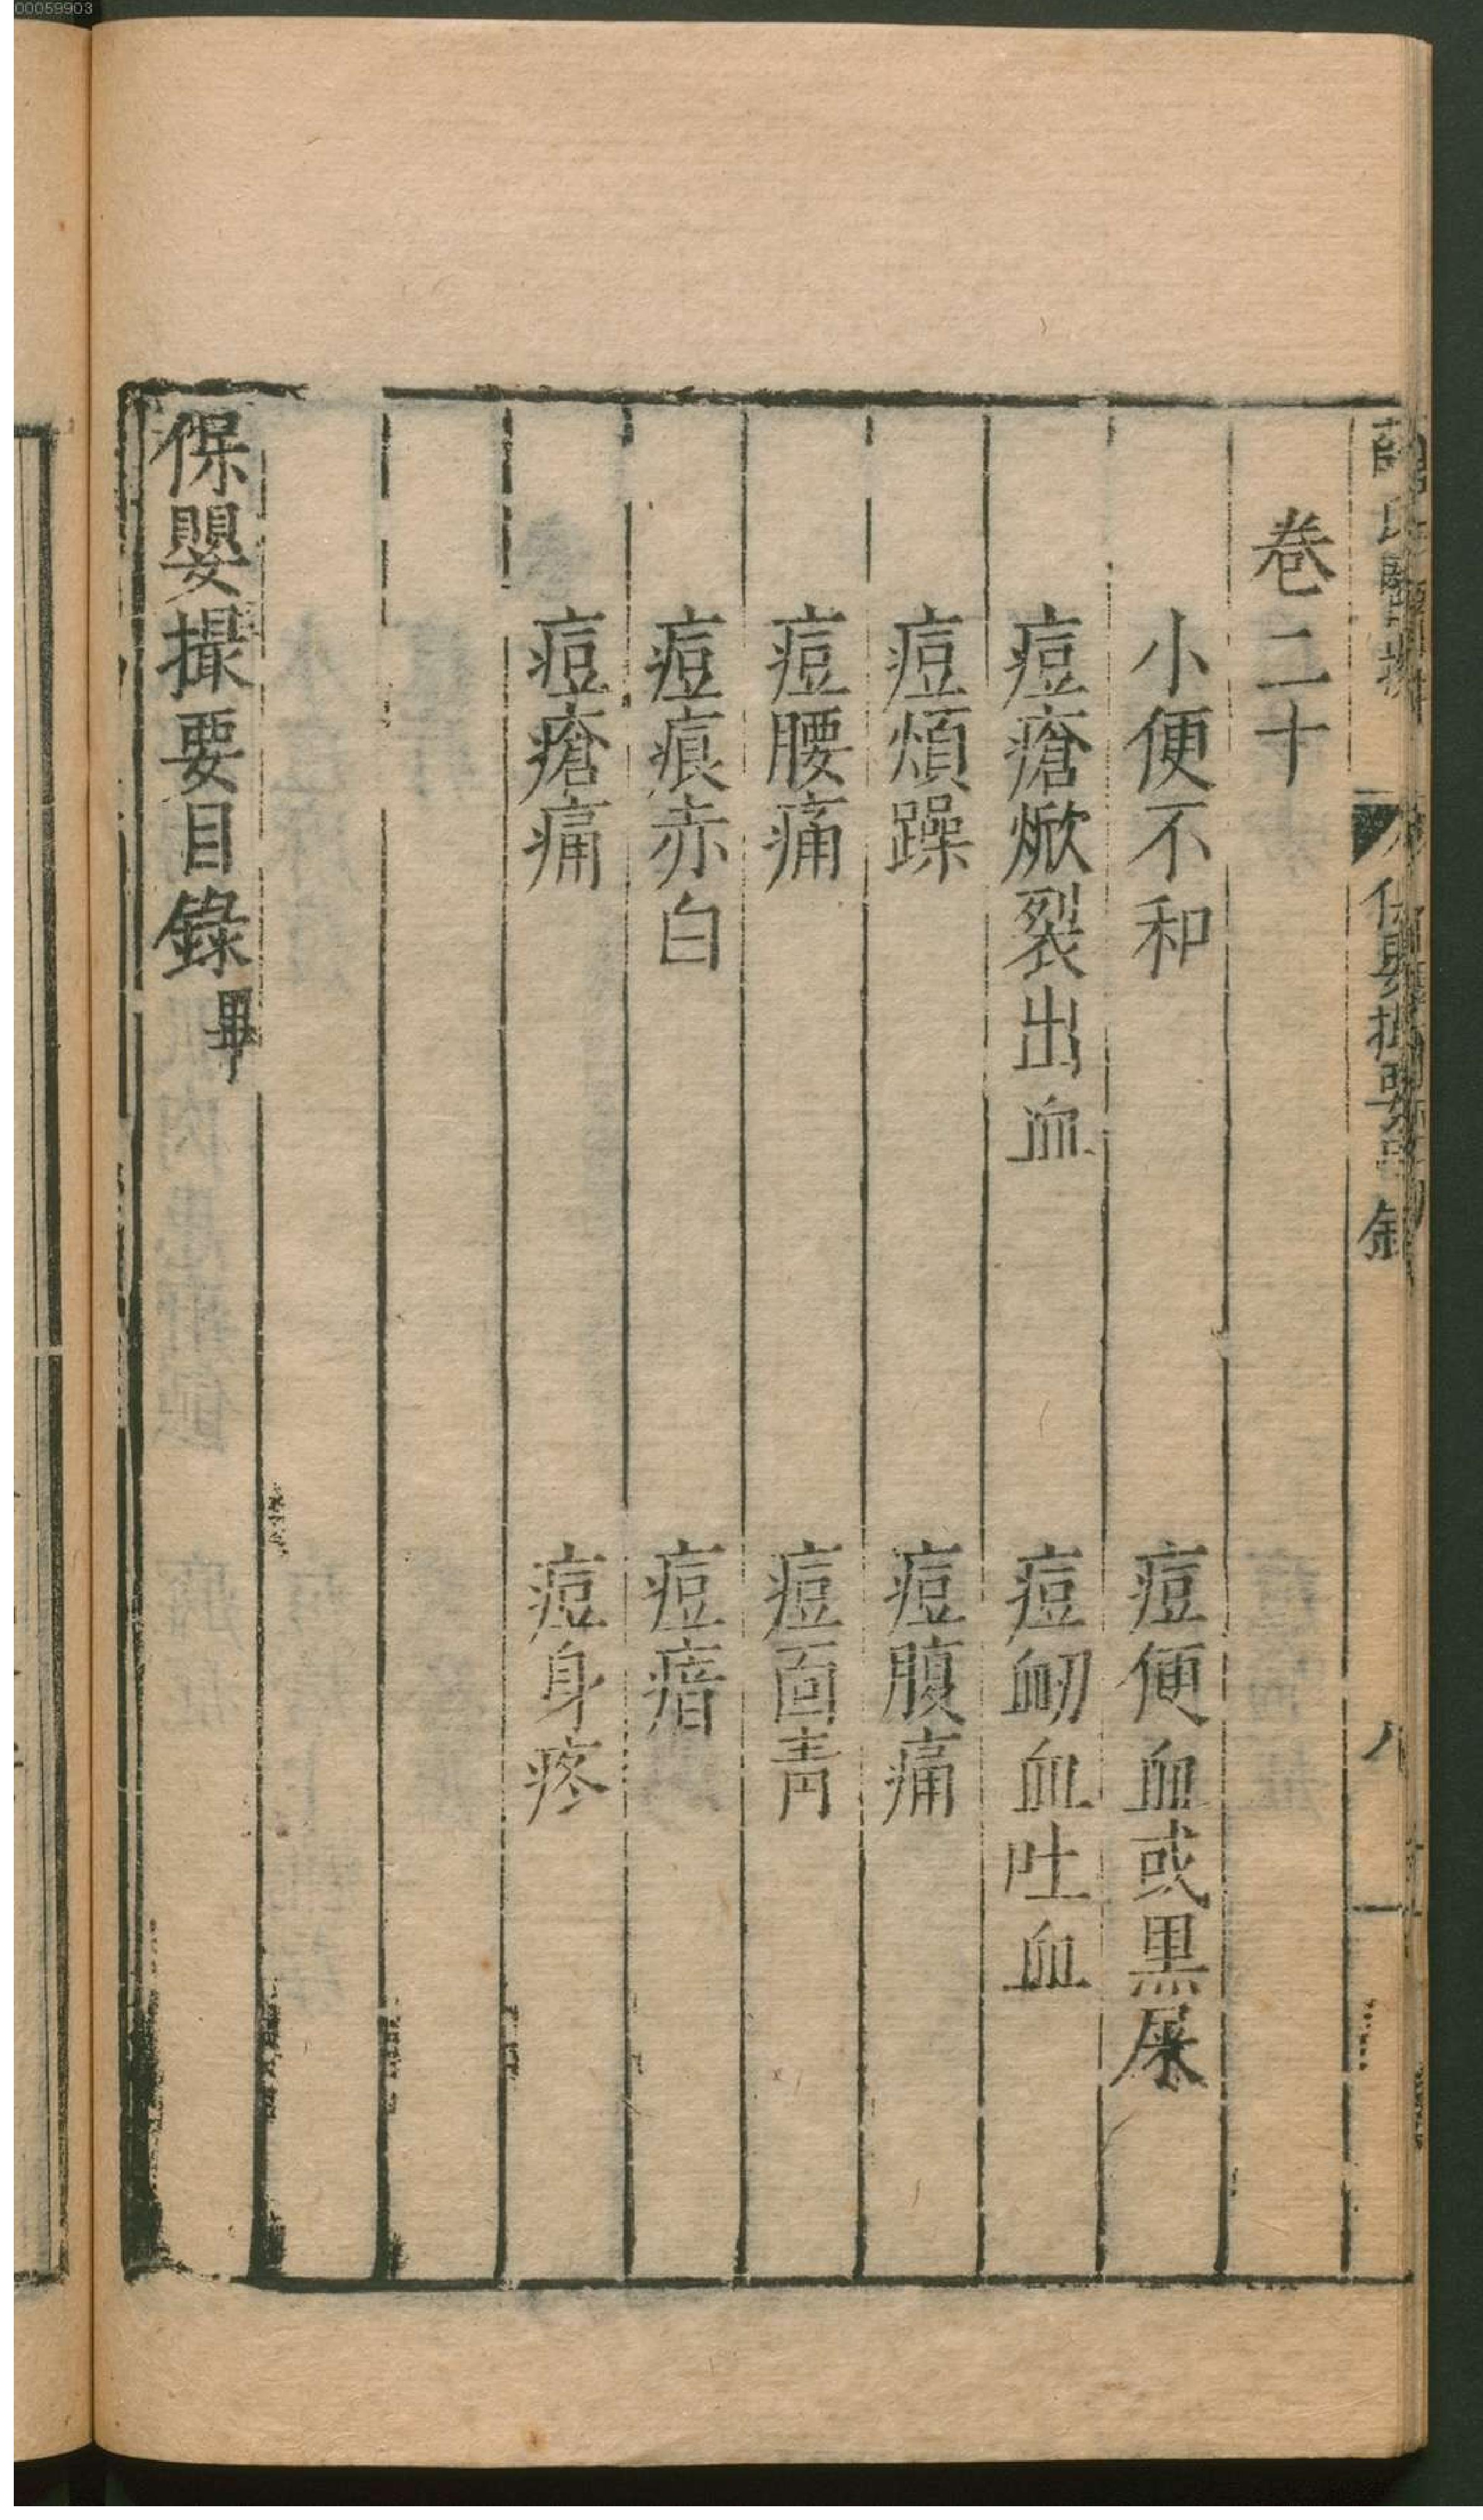 00059903
卷二十
小便不和　痘便血或黑屎
痘瘡焮裂出血　痘衂血吐血
痘煩躁　痘腹痛
痘腰痛　痘面青
痘痕赤白　痘瘖
痘瘡痛　痘身疼
保嬰撮要目錄畢